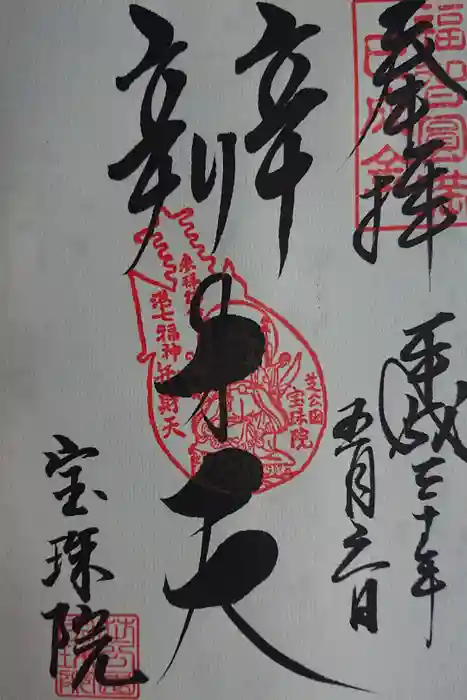 奉拝
福智円満
平成三十年
五月六日
辨才天
港七福神
弁財天
芝公園
宝珠院
宝珠院